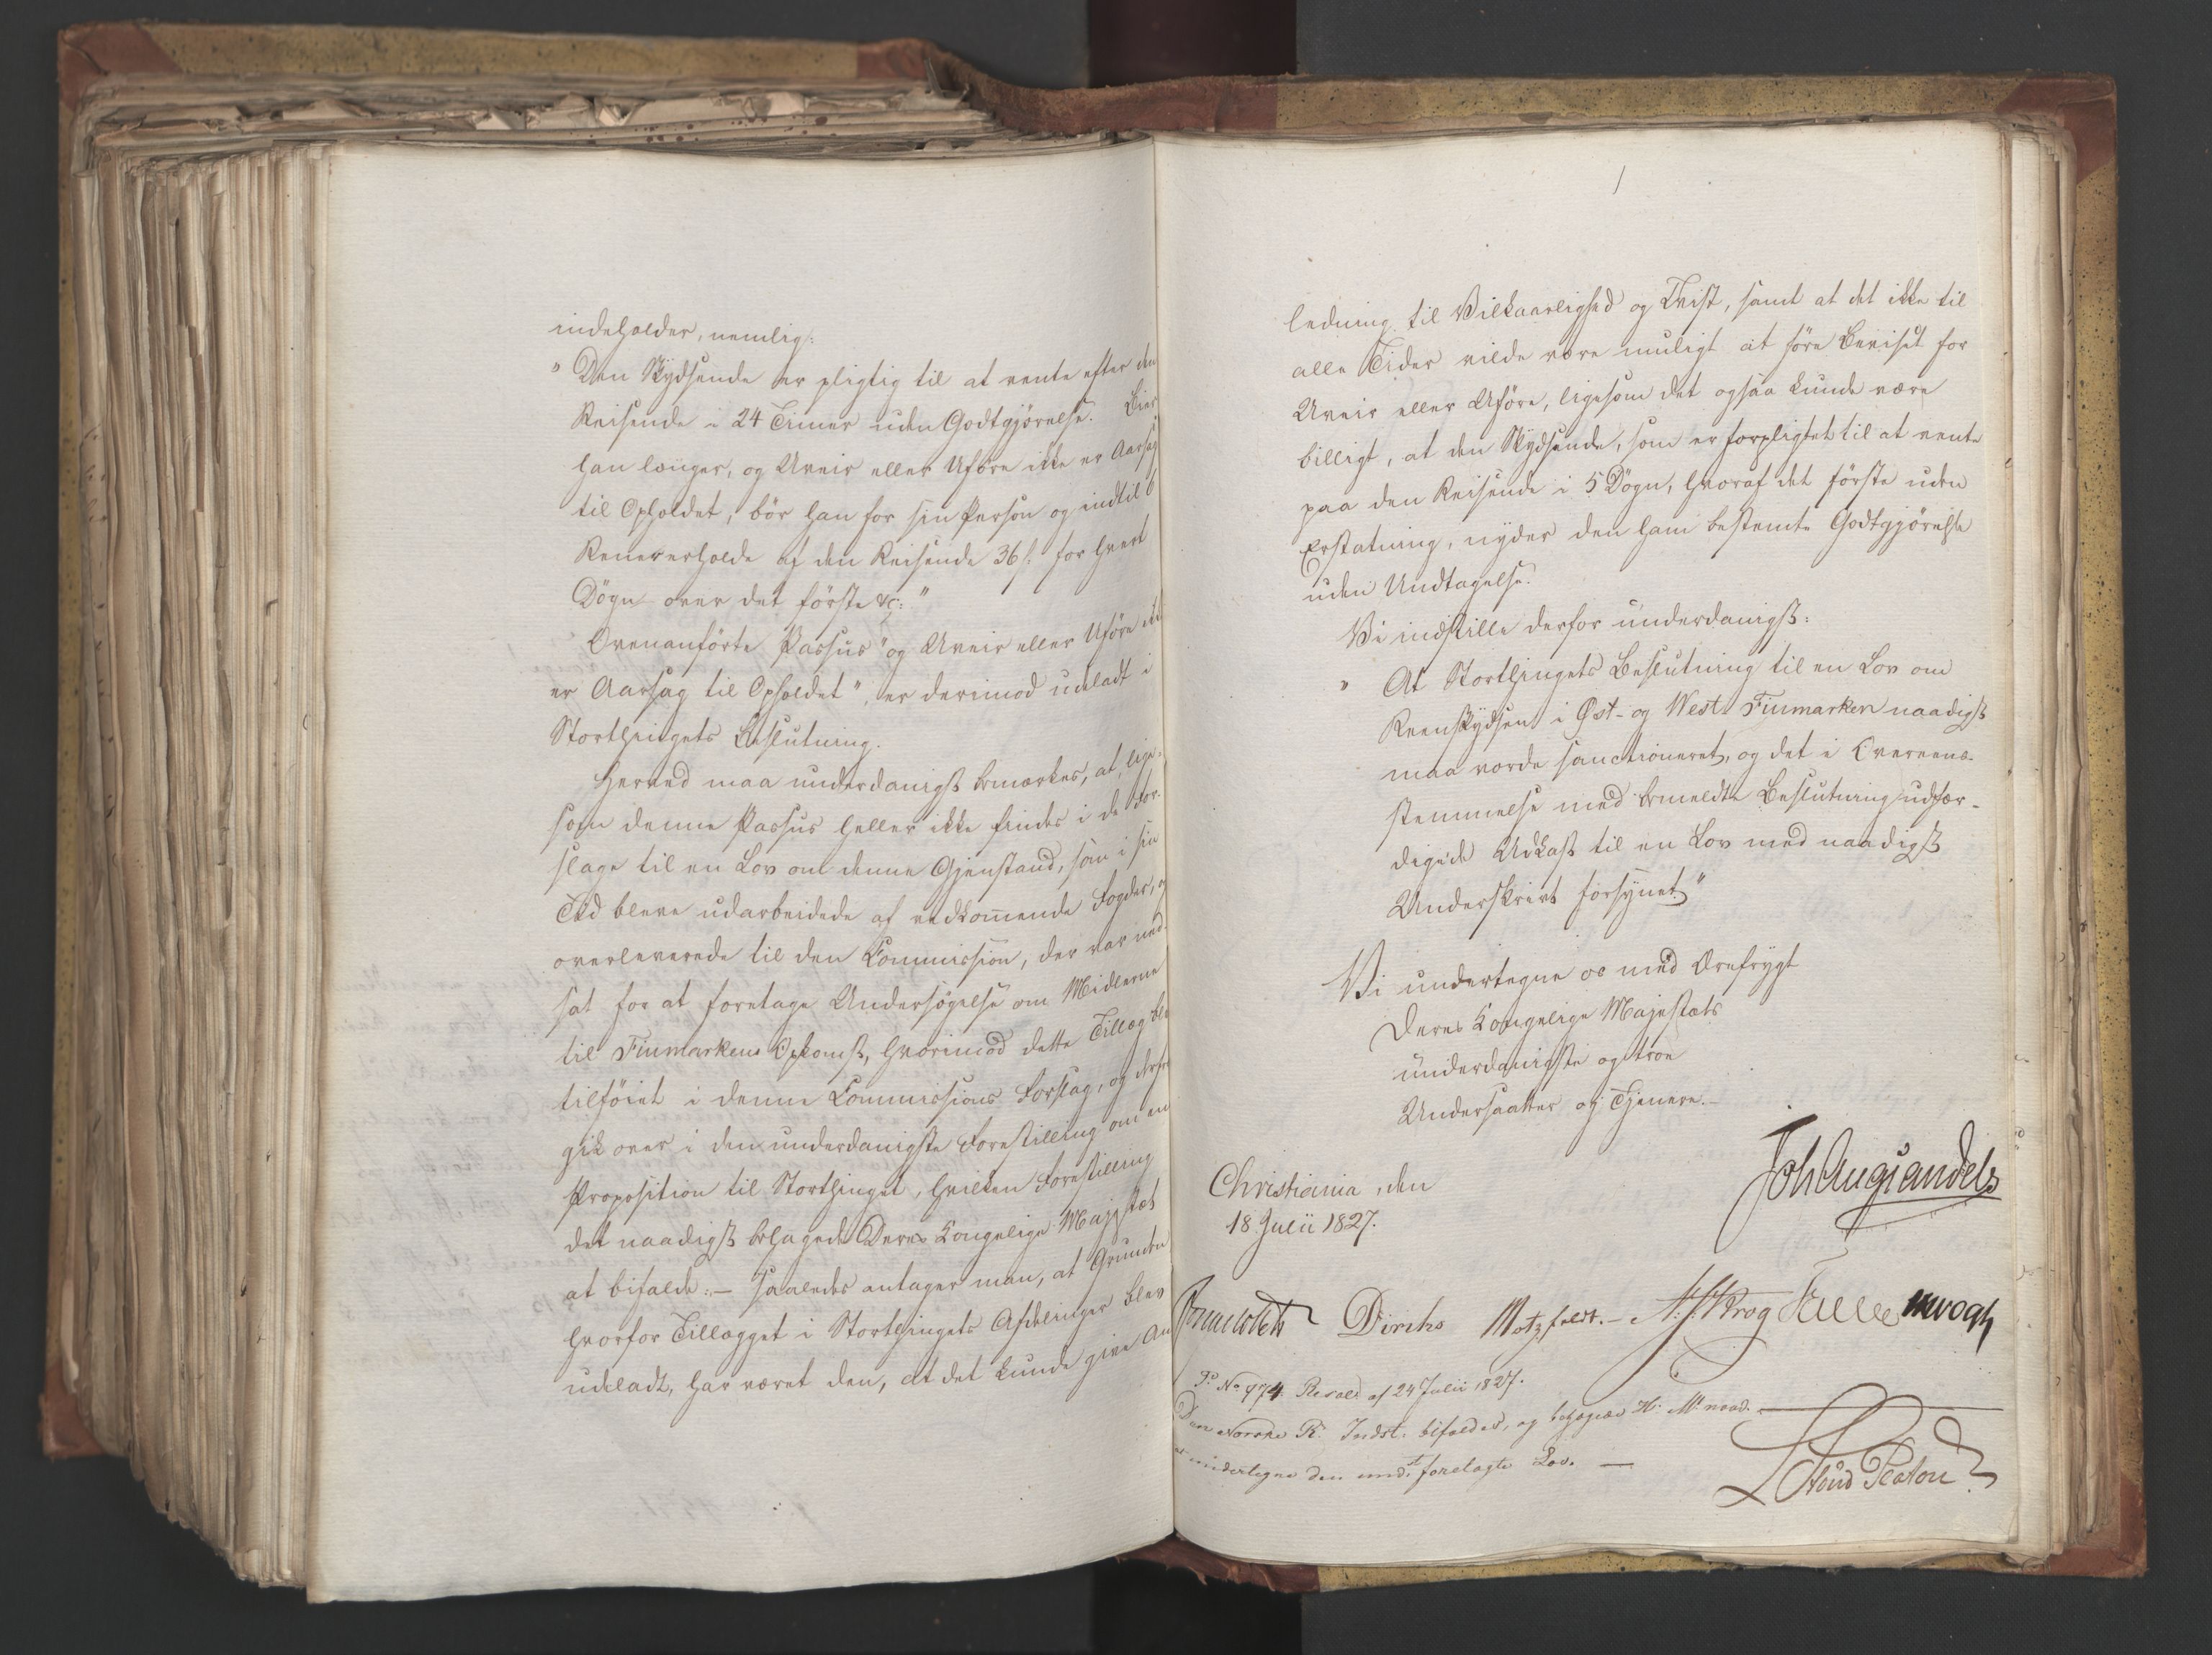 indeholder, nemlig:
" Den Skydsende er pligtig til at vente efter den
Reisende i 24 Timer uden Godtgjørelse. Bier
han længer, og Uveir eller Uføre ikke er Aarsag
til Opholdet, bör han for sin Person og indtil 6
Reener erholde af den Reisende 36 s: for hvert
Dögn over det förste &c: "
Ovenanförte Passus "og Uveir eller Uföre ikke
er Aarsag til Opholdet", er derimod udeladt i
Storthingets Beslutning.
Herved maa underdanigst bemærkes, at, lige-
som denne Passus heller ikke findes i de For-
slage til en Lov om denne Gjenstand, som i sin
Tid bleve udarbeidede af vedkommende Fogder, og
overleverede til den Commission, der var ned-
sat for at foretage Undersögelse om Midlerne
til Finmarkens Opkomst, hvorimod dette Tillæg blev
tilföiet i denne Commissions Forslag, og derfra
gik over i den underdanigste Forestilling om en
Proposition til Storthinget, hvilken Forestilling
det naadigst behagede Deres Kongelige Majestæt
at bifalde: — saaledes antager man, at Grunden
hvorfor Tillægget i Storthingets Afdelinger blev
udeladt, har været den, at det kunde give An
ledning til Vilkaarlighed og Tvist, samt at det ikke til
alle Tider vilde være muligt at före Beviset for
Uveir eller Uföre, ligesom det ogsaa kunde være
billigt, at den Skydsende, som er forpligtet til at vente
paa den Reisende i 5 Dögn, hvoraf det förste uden
Erstatning, nyder den ham bestemte Godtgjörelse
uden Undtagelse.
Vi indstille derfor underdanigst:
" At Storthingets Beslutning til en Lov om
Reenskydsen i Øst- og West-Finmarken naadigst
maa vorde sanctioneret, og det i Overeens-
stemmelse med bemeldte Beslutning udfær-
digede Udkast til en Lov med naadigst
Underskrivt forsynet"
Vi undertegne os med Ærefrygt
Deres Kongelige Majestæts
underdanigste og troe
Undersaatter og Tjenere.-
Joh Aug Sandels
Christiania, den
18 Julii 1827.
Diriks Motzfeldt.- A. S. Krog Fasting
To No 974. Resol: af 24 Julii 1827.
Den Norske R: Indst: bifaldes, og behagede H: M: naad.
at undertegne den und:t forelagte Lov. —